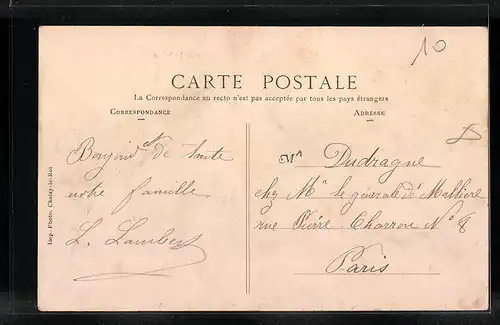 10
CARTE POSTALE
La Correspondance au recto n'est pas acceptée par tous les pays étrangers
CORRESPONDANCE
ADRESSE
de toute
notre famille
L. Lambert
Mr Dudragne
chez Mr le général de
rue Pierre Charron No 8
Paris
Imp. Photo. Choisy-le-Roi